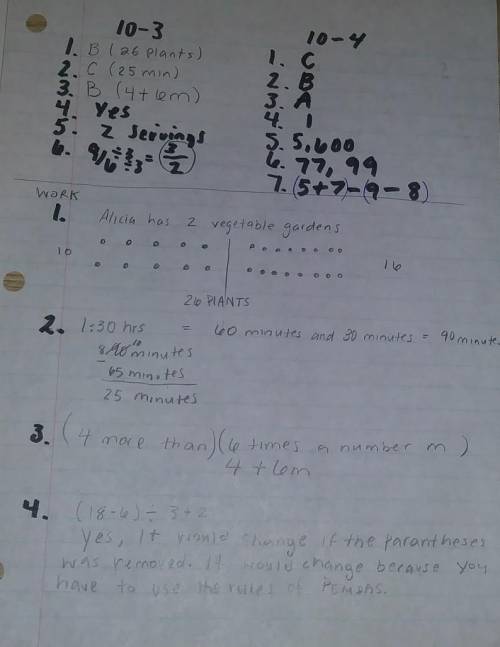 10-3
1. B (26 plants)
2. C (25 min)
3. B (4+6m)
4. Yes
5. 2 servings
6. 9/6 ÷ 3/3 = 3/2
10-4
1. C
2. B
3. A
4. 1
5. 5,600
6. 77, 99
7. (5+7)-(9-8)
WORK
1. Alicia has 2 vegetable gardens
10
16
26 PLANTS
2. 1:30 hrs = 60 minutes and 30 minutes = 90 minute
8 10
90 minutes
- 65 minutes
25 minutes
3. (4 more than)(6 times a number m)
4 + 6m
4. (18-6) ÷ 3+2
Yes, It would change if the parantheses
was removed. It would change because you
have to use the rules of PEMDAS.